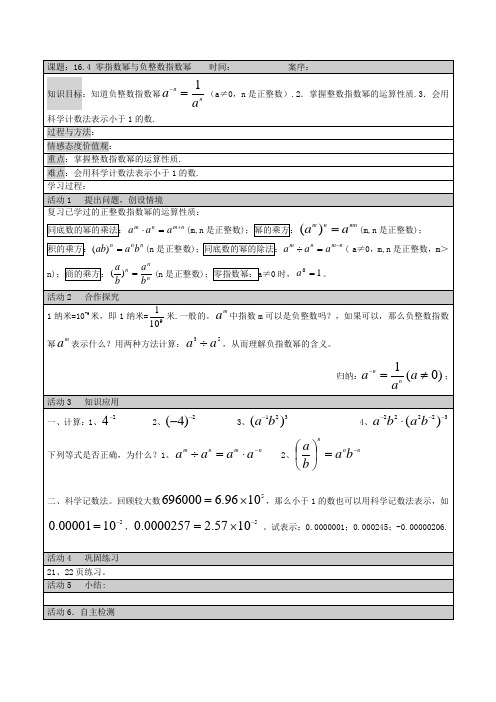 课题:16.4 零指数幂与负整数指数幂 时间: 案序:
知识目标:知道负整数指数幂 $a^{-n}=\frac{1}{a^n}$(a≠0,n 是正整数).2.掌握整数指数幂的运算性质.3.会用
科学计数法表示小于1的数.
过程与方法:
情感态度价值观:
重点:掌握整数指数幂的运算性质.
难点:会用科学计数法表示小于1的数.
学习过程:
活动1 提出问题,创设情境
复习已学过的正整数指数幂的运算性质:
同底数的幂的乘法:$a^m \cdot a^n = a^{m+n}$(m,n 是正整数);幂的乘方:$(a^m)^n = a^{mn}$(m,n 是正整数);
积的乘方:$(ab)^n = a^n b^n$(n 是正整数);同底数的幂的除法:$a^m \div a^n = a^{m-n}$( a≠0,m,n 是正整数,m>
n);商的乘方:$(\frac{a}{b})^n = \frac{a^n}{b^n}$(n 是正整数);零指数幂:a≠0 时,$a^0 = 1$。
活动2 合作探究
1纳米=10⁻⁹米,即1纳米=$\frac{1}{10^9}$米.一般的。$a^m$中指数m可以是负整数吗?,如果可以,那么负整数指数
幂$a^m$表示什么?用两种方法计算:$a^3 \div a^5$,从而理解负指数幂的含义。
归纳:$a^{-n} = \frac{1}{a^n}(a \neq 0)$;
活动3 知识应用
一、计算:1、$4^{-2}$ 2、$(-4)^{-2}$ 3、$(a^{-1}b^2)^3$ 4、$a^{-2}b^2 \cdot (a^2b^{-2})^{-3}$
下列等式是否正确,为什么?1、$a^m \div a^n = a^m \cdot a^{-n}$ 2、$\left(\frac{a}{b}\right)^n = a^n b^{-n}$
二、科学记数法。回顾较大数$696000 = 6.96 \times 10^5$,那么小于1的数也可以用科学记数法表示,如
$0.00001 = 10^{-5}$,$0.0000257 = 2.57 \times 10^{-5}$ 。试表示:0.0000001;0.000245;-0.00000206.
活动4 巩固练习
21、22页练习。
活动5 小结:
活动6.自主检测